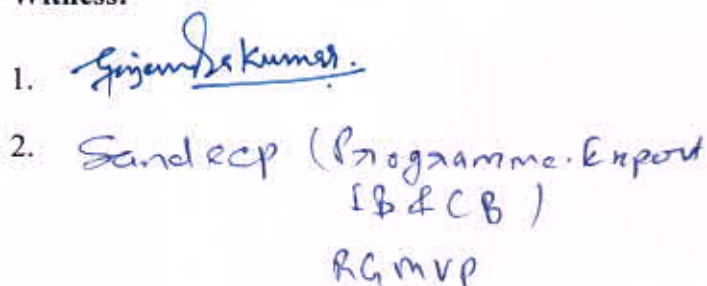 Witness:
1. Gajendra Kumar.
2. Sandeep (Programme. Expert
IB & CB)
RGMVP